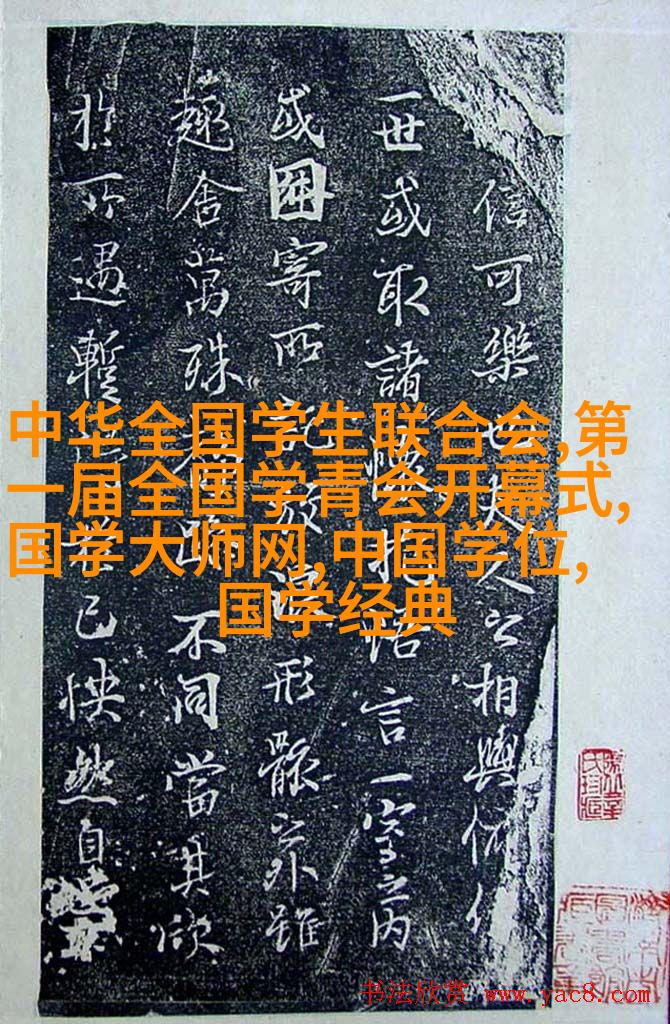 信可樂也夫人之相與俯仰
一世或取諸懷抱悟言一室之內
或因寄所託放浪形骸之外雖
趣舍萬殊靜躁不同當其欣
於所遇暫得於己怏然自
中华全国学生联合会,第
一届全国学青会开幕式,
国学大师网,中国学位,
国学经典
书法欣赏 www.yac8.com